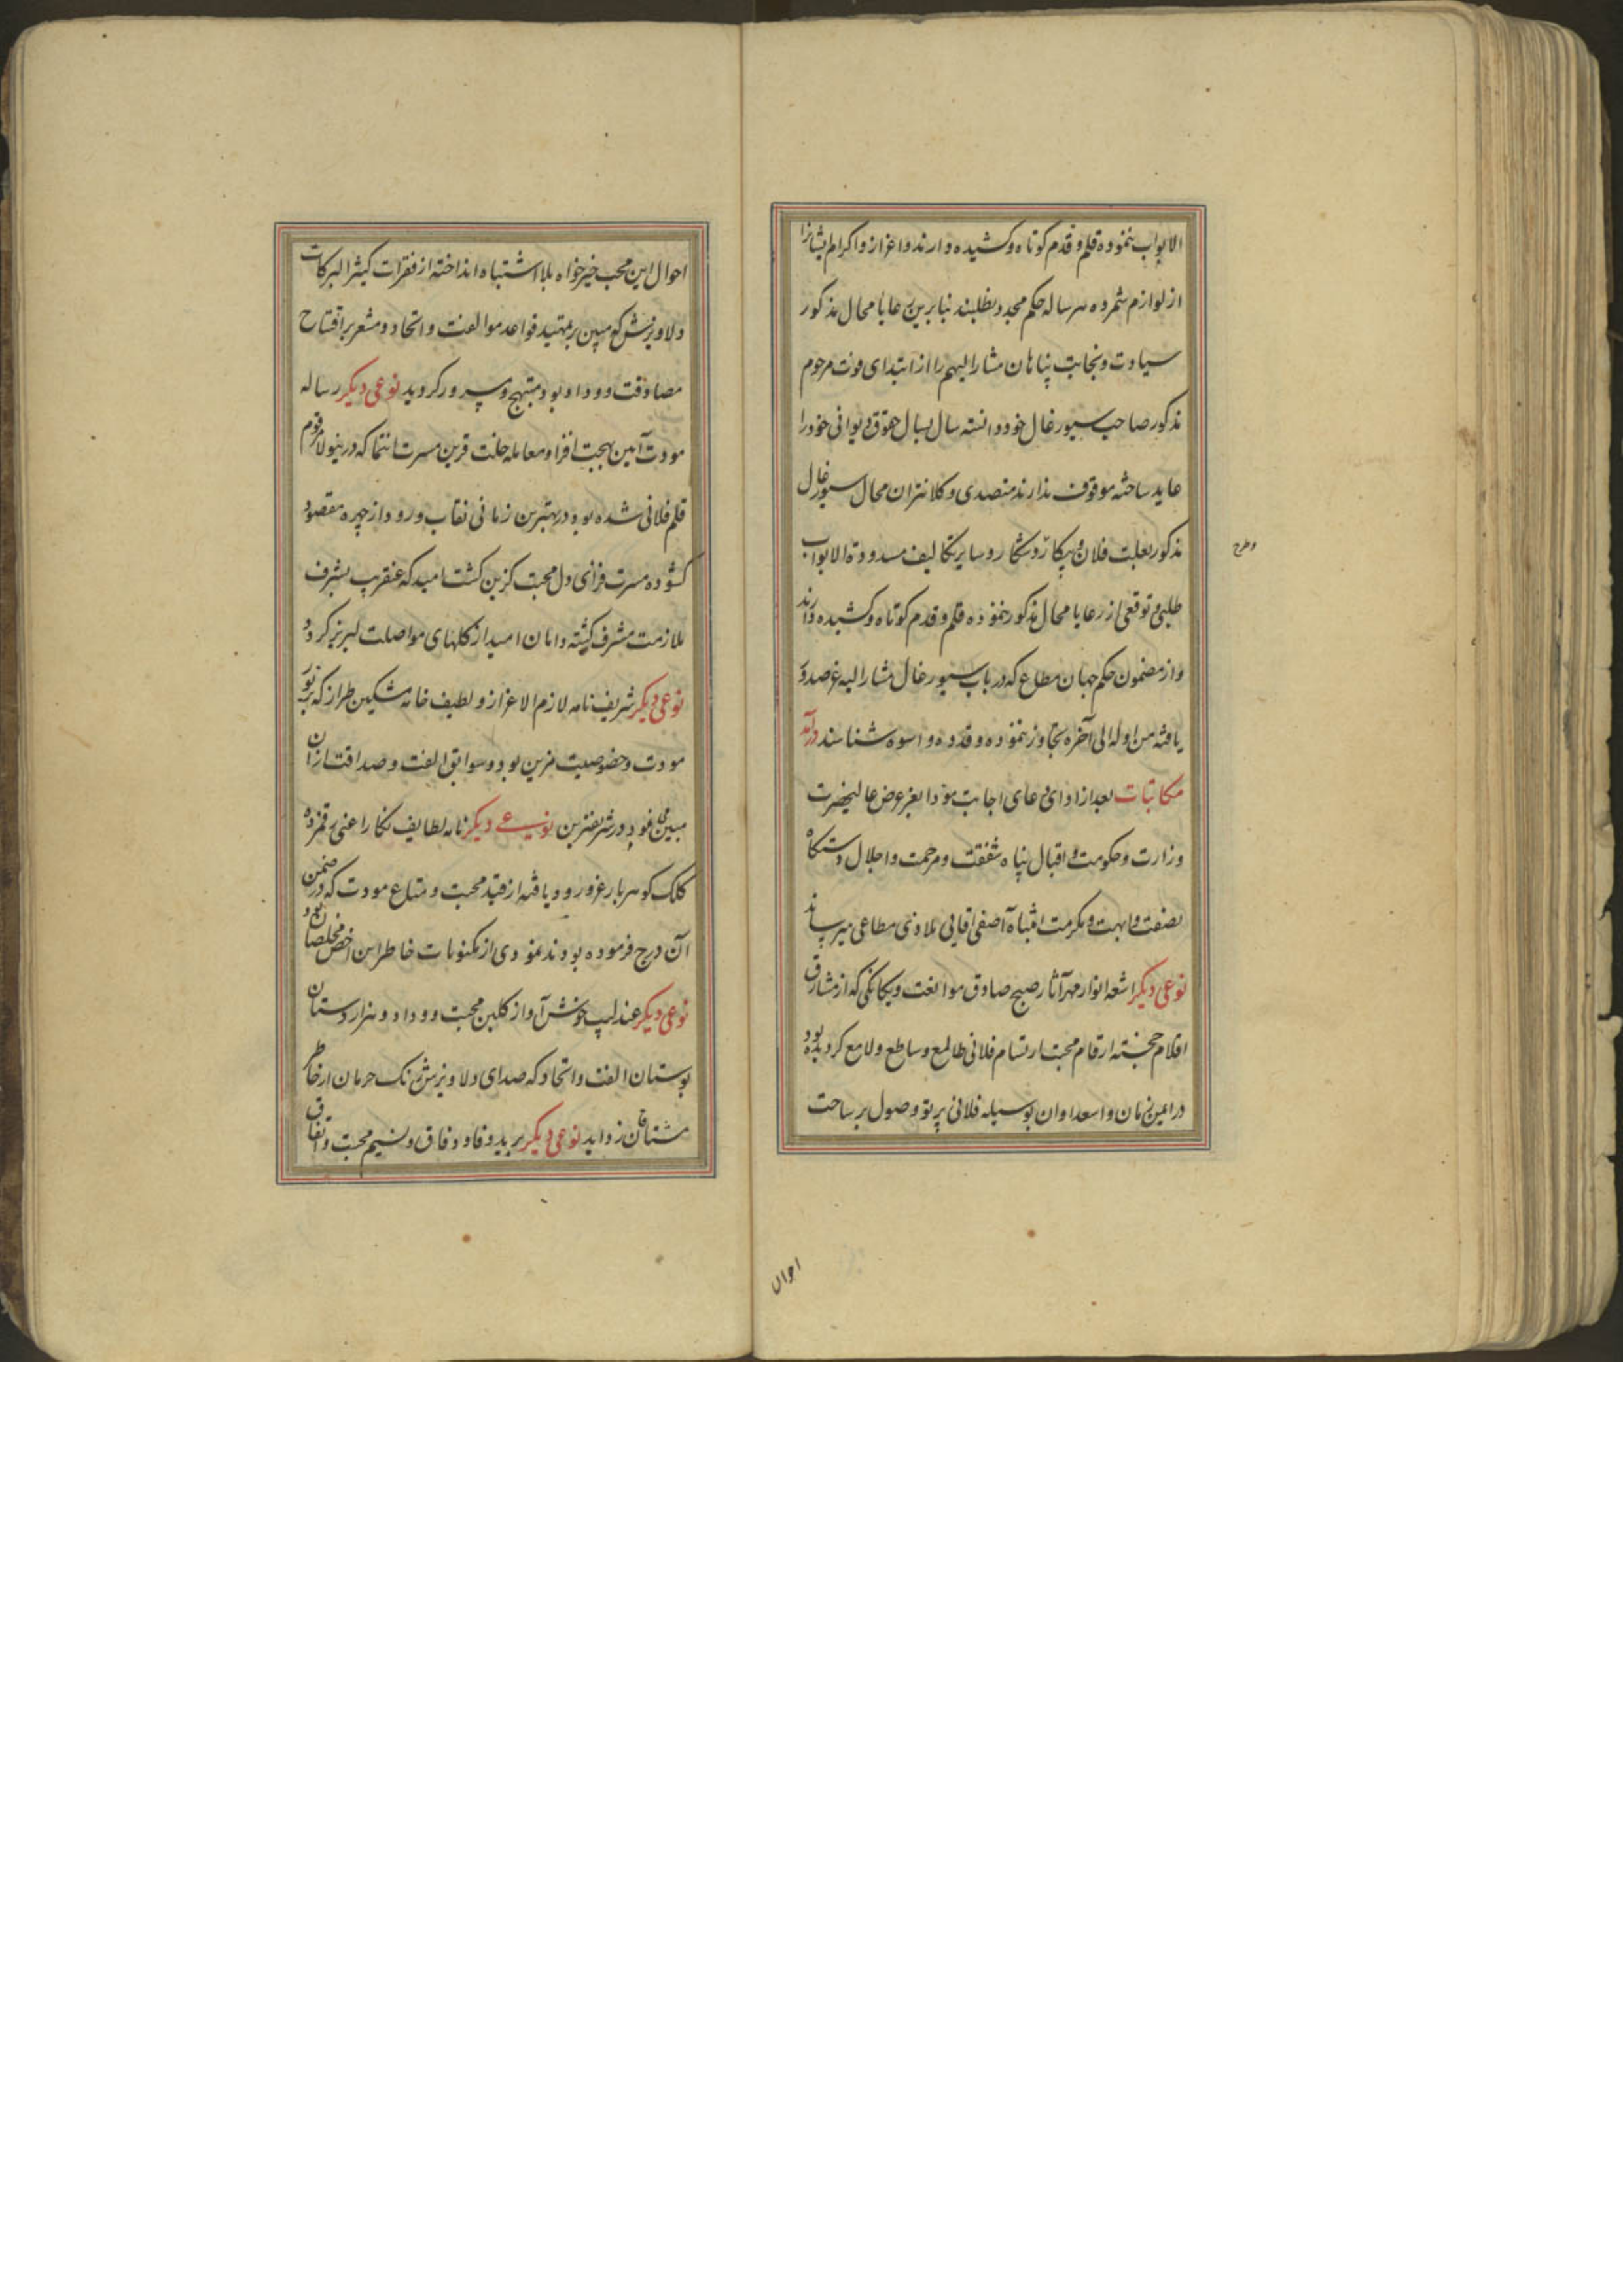 الابواب ننموده قلم و قدم کوتاه و کشیده دارند و اعزاز و اکرام ایشانرا
از لوازم شمرده هر ساله حکم مجدد نطلبند بنابرین رعایا محال مذکور
سیادت و نجابت پناهان مشارالیهم را از ابتدای فوت مرحوم
مذکور صاحب سیورغال خود دانسته سال بسال حقوق دیوانی خود را
عاید ساخته موقوف ندارند متصدی و کلانتران محال سیورغال
مذکور بعلت فلان و پیکار و شکار و سایر تکالیف مسدودة الابواب
وطرح
طلبی و توقعی از رعایا محال مذکور ننموده قلم و قدم کوتاه و کشیده دارند
و از مضمون حکم جهان مطاع که در باب سیورغال مشارالیه عز صدور
یافته من اوله الی آخره تجاوز ننموده و قدوه و اسوه شناسند درآمد
مکاتبات بعد از ادای دعای اجابت مؤدا بعز عرض عالیحضرت
وزارت و حکومت و اقبال پناه شفقت و مرحمت و اجلال دستکاه
نصفت و ابهت و مکرمت انتباه آصفی اقایی ملاذی مطاعی میرساند
نوعی دیکر اشعه انوار مهر آثار صبح صادق موالفت و یکانکی که از مشارق
اقلام خجسته ارقام محبت ارتسام فلانی طالع و ساطع و لامع کردیده بود
در ایمن زمان و اسعد اوان بوسیله فلانی پرتو وصول بر ساحت
احوال
احوال این محب خیرخواه بلا اشتباه انداخته از فقرات کثیر البرکات
دلاویزش که مبین بر تمهید قواعد موالفت و اتحاد و مشعر بر افتتاح
مصادقت و وداد بود مبتهج و مسرور کردید نوعی دیکر رساله
مودت آمین بهجت افزا و معامله خلت قرین مسرت انتما که درینولا مرقوم
قلم فلانی شده بود در بهترین زمانی نقاب ورود از چهره مقصود
کشوده مسرت فزای دل محبت کزین کشت امید که عنقریب بشرف
ملازمت مشرف کشته دامان امید از کلهای مواصلت لبریز کردد
نوعی دیکر شریف نامه لازم الاعزاز و لطیف خامه مشکین طراز که بزیور
مودت و خصوصیت مزین بود و سوابق الفت و صداقت از آن
مبین می نمود در شریفترین نوعی دیکر نامه لطایف نکار اعنی رقمزده
کلک کوهربار غرور ود یافته از قید محبت و متاع مودت که در ضمن
آن درج فرموده بودند نمودی از مکنونات خاطر این اخص مخلصان بود
نوعی دیکر عندلیب خوش آواز کلبن محبت و وداد و هزار دستان
بوستان الفت و اتحاد که صدای دلاویزش زنک حرمان از خاطر
مشتاقان زداید نوعی دیکر برید وفا و وفاق و نسیم محبت و اتفاق